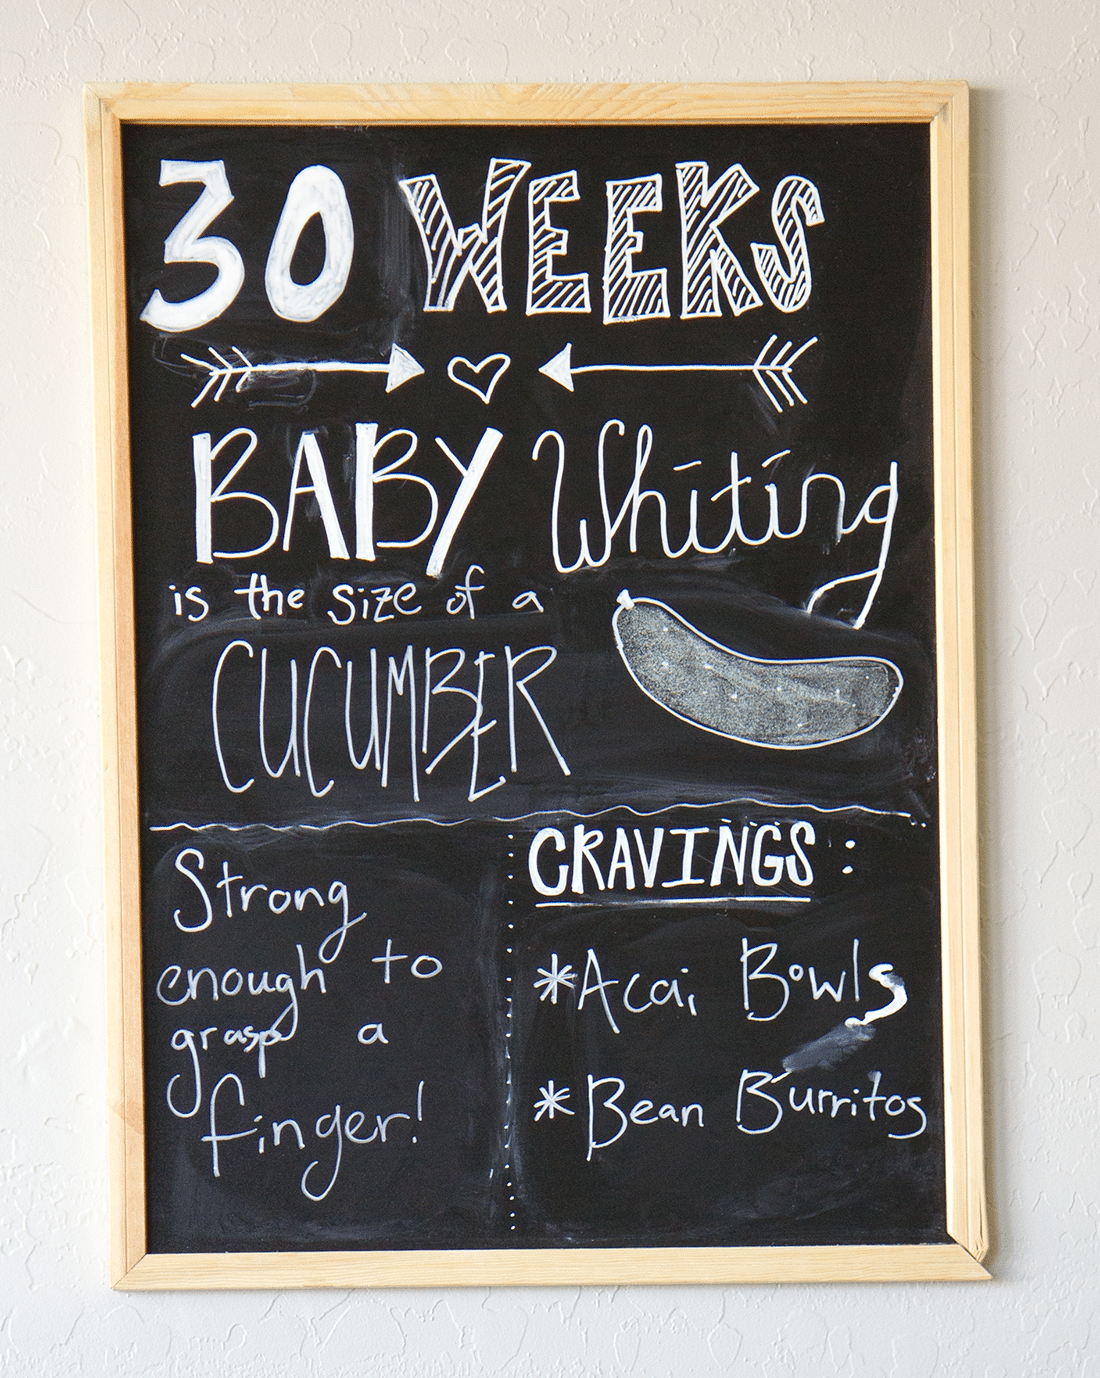 30 WEEKS
BABY Whiting
is the size of a
CUCUMBER
Strong
enough to
grasp a
finger!
CRAVINGS:
*Acai Bowls
*Bean Burritos